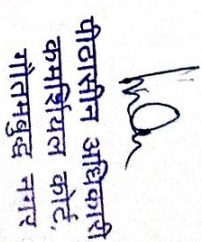 पीठासीन अधिकारी
कमर्शियल कोर्ट,
गौतमबुद्ध नगर